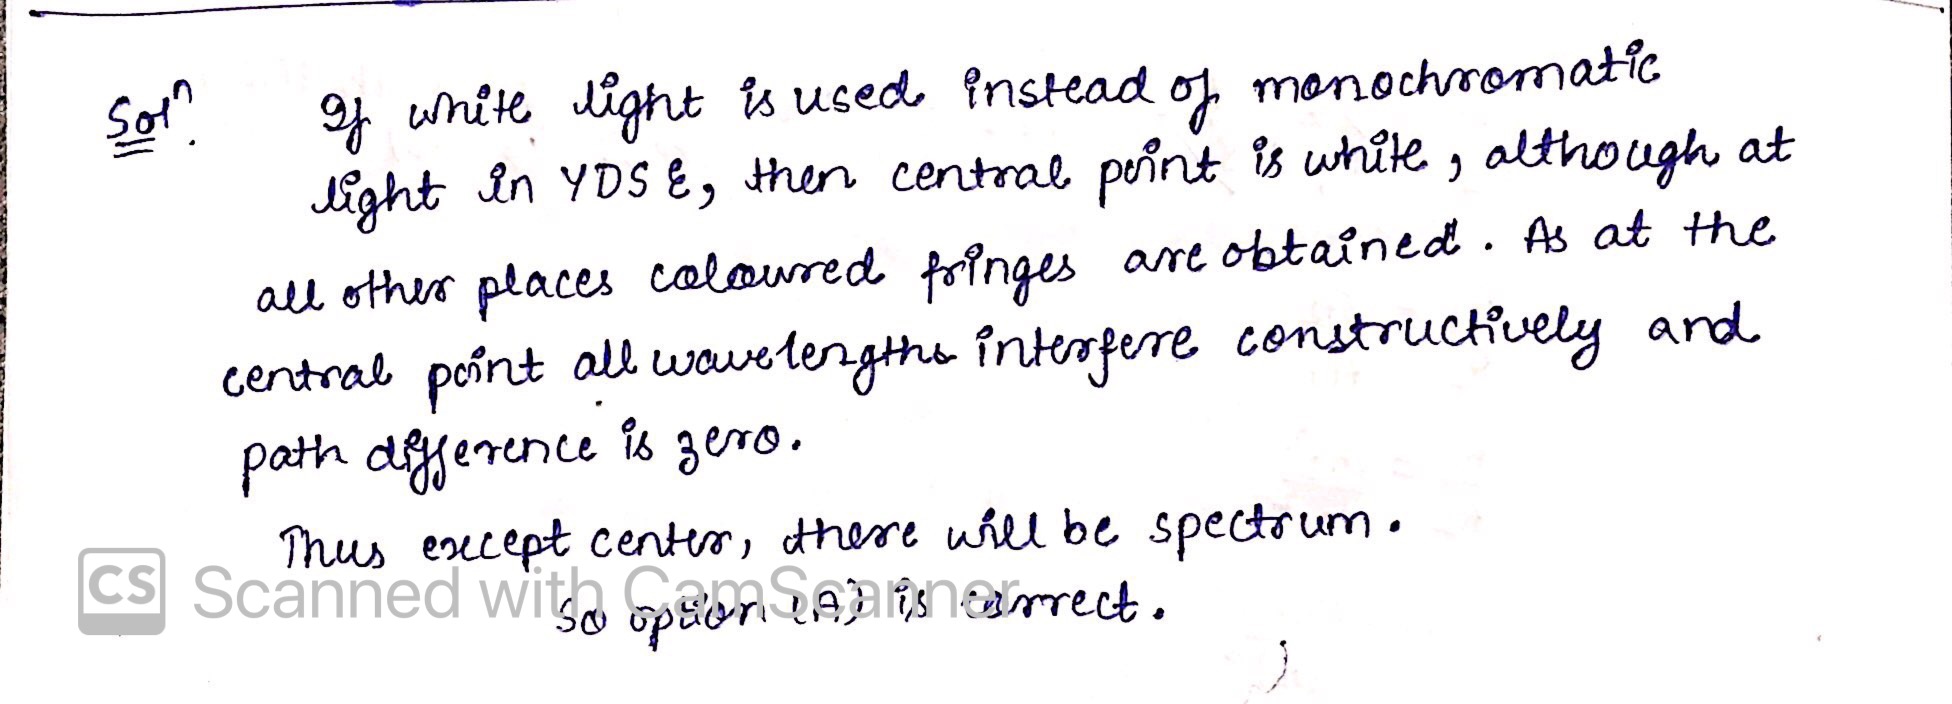 Solⁿ. If white light is used instead of monochromatic
light in YDSE, then central point is white, although at
all other places coloured fringes are obtained. As at the
central point all wavelengths interfere constructively and
path difference is zero.
Thus except center, there will be spectrum.
CS Scanned with CamScanner
So option (A) is correct.